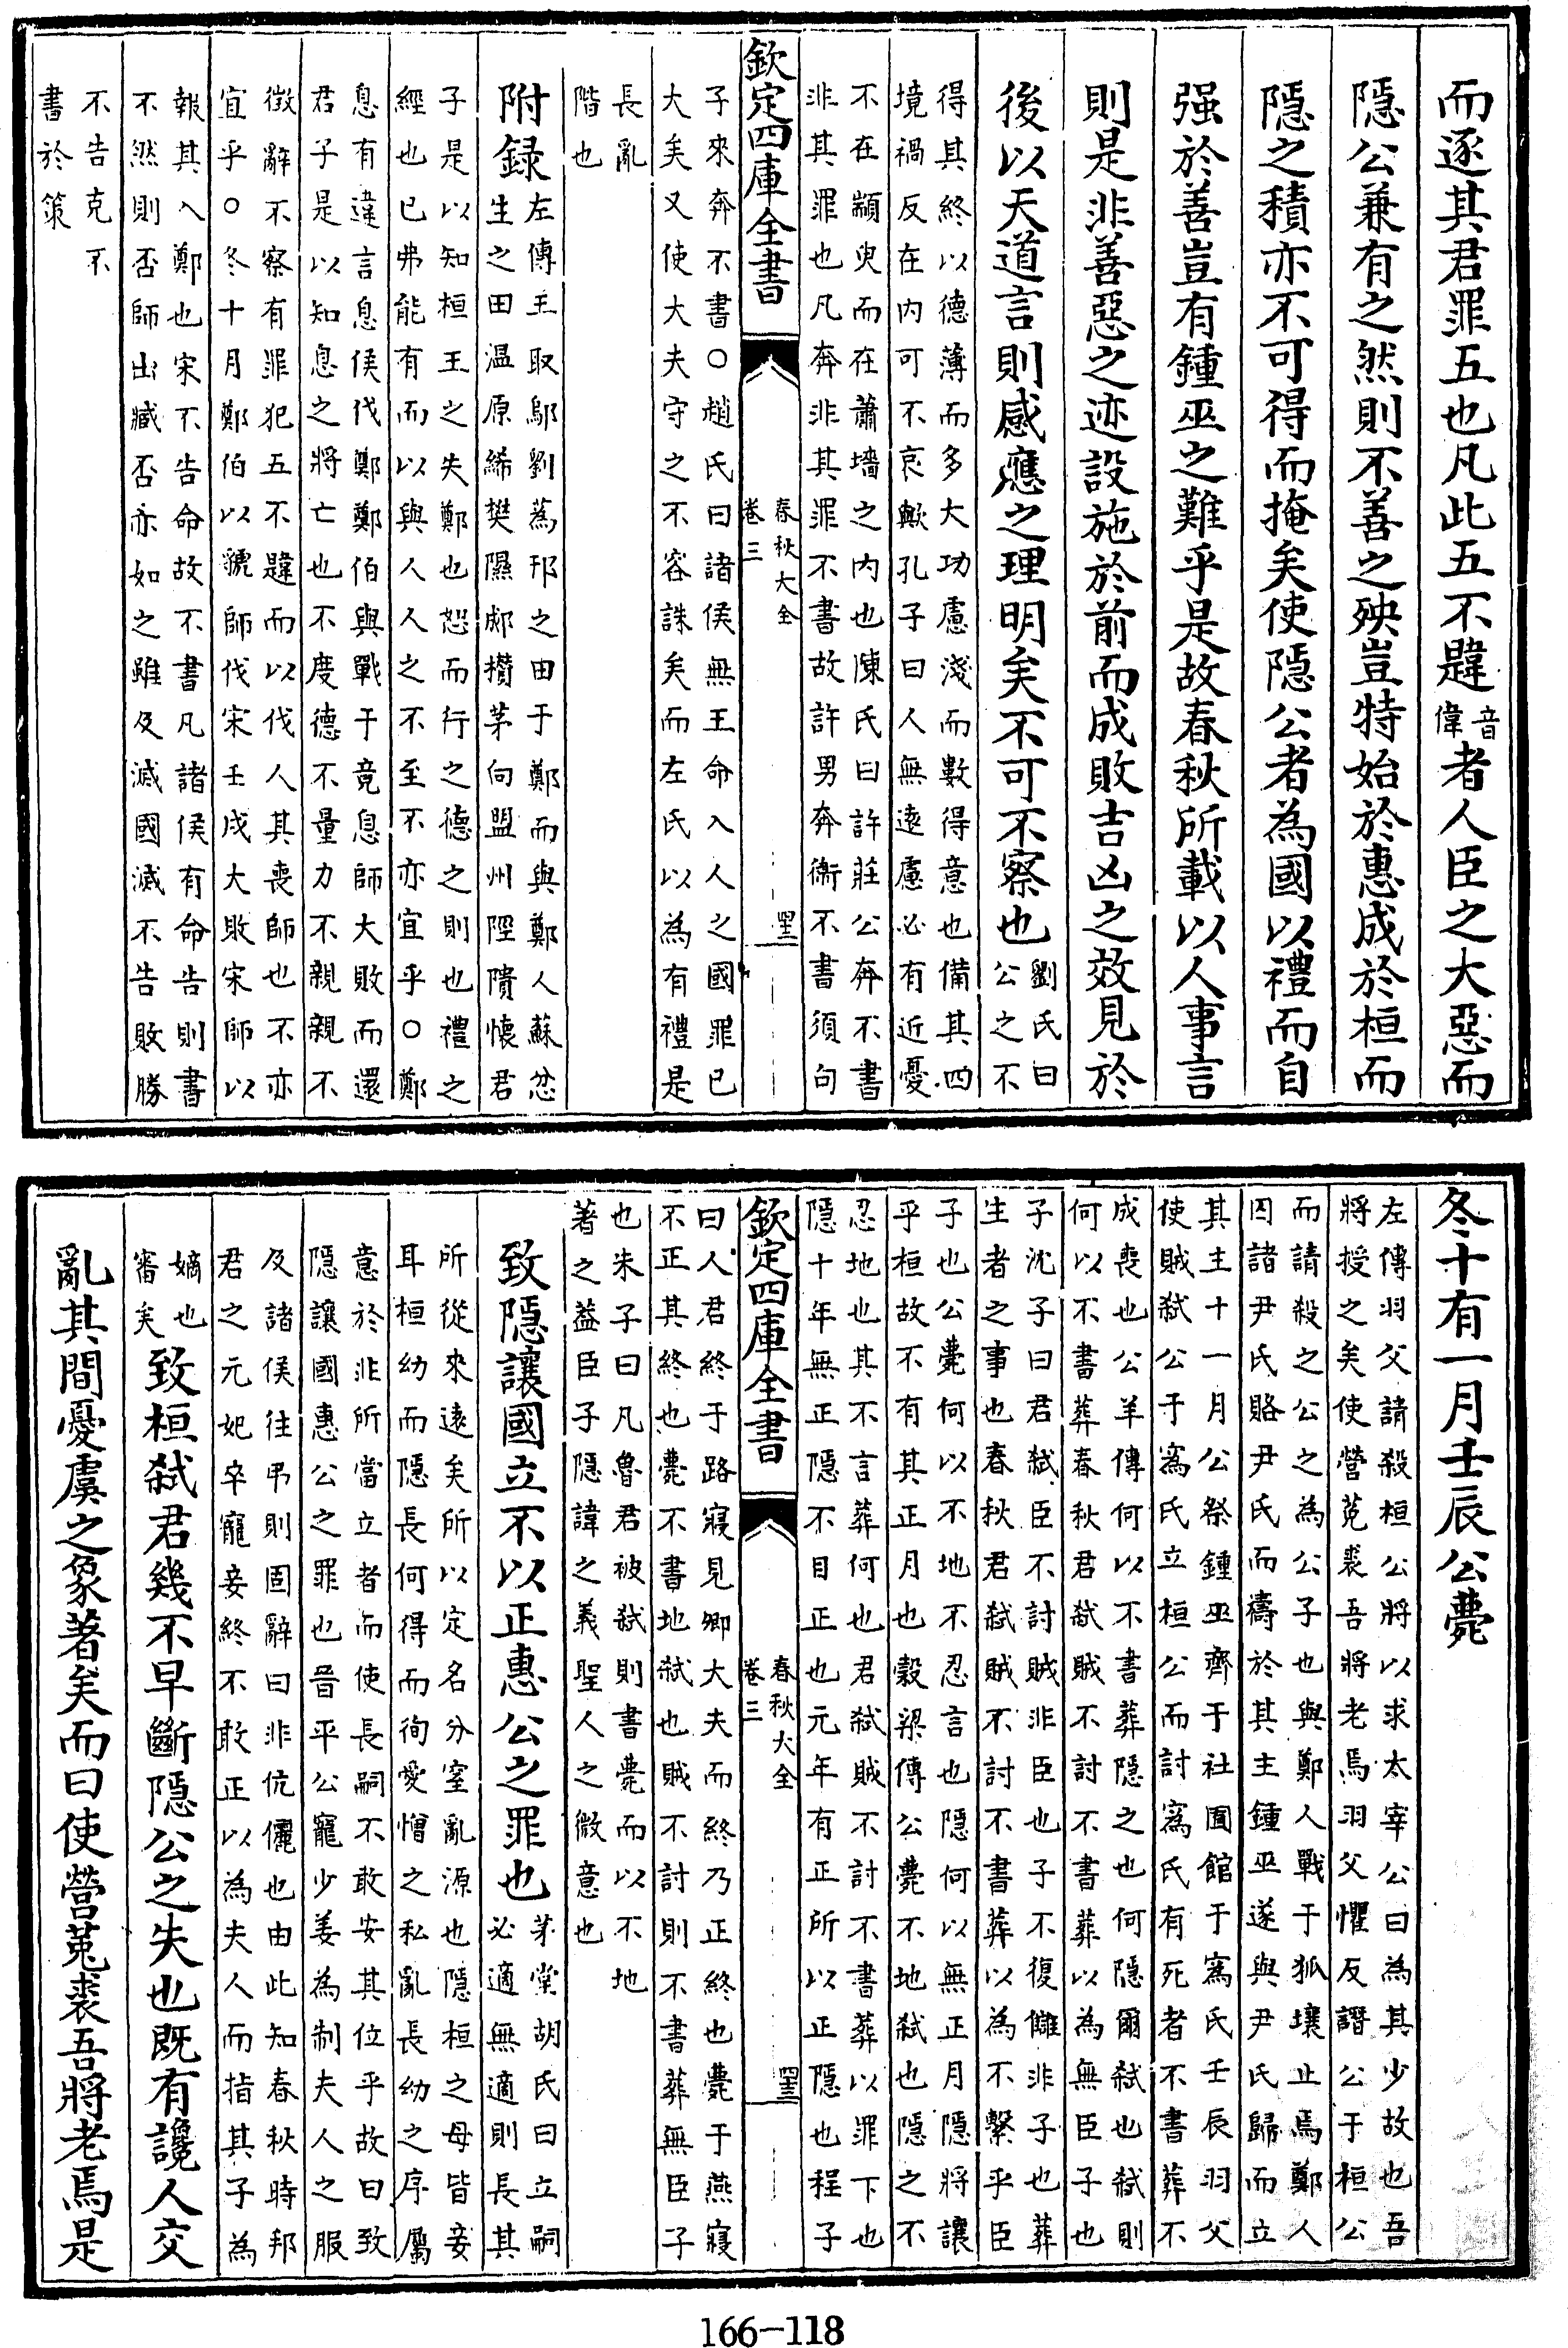 而逐其君罪五也凡此五不韙音偉者人臣之大惡而
隱公兼有之然則不善之殃豈特始於惠成於桓而
隱之積亦不可得而掩矣使隱公者為國以禮而自
强於善豈有鍾巫之難乎是故春秋所載以人事言
則是非善惡之迹設施於前而成敗吉凶之效見於
後以天道言則感應之理明矣不可不察也劉氏曰公之不
得其終以德薄而多大功慮淺而數得意也備其四
境禍反在内可不哀歟孔子曰人無遠慮必有近憂
不在顓臾而在蕭墻之内也陳氏曰許莊公奔不書
非其罪也凡奔非其罪不書故許男奔衛不書須句
欽定四庫全書
春秋大全
卷三
罜
子來奔不書○趙氏曰諸侯無王命入人之國罪已
大矣又使大夫守之不容誅矣而左氏以為有禮是
長亂
階也
附録左傳王取鄔劉蒍邘之田于鄭而與鄭人蘇忿
生之田温原絺樊隰郕攢茅向盟州陘隤懷君
子是以知桓王之失鄭也恕而行之德之則也禮之
經也已弗能有而以與人人之不至不亦宜乎○鄭
息有違言息侯伐鄭鄭伯與戰于竟息師大敗而還
君子是以知息之將亡也不度德不量力不親親不
徴辭不察有罪犯五不韙而以伐人其喪師也不亦
宜乎○冬十月鄭伯以虢師伐宋壬戌大敗宋師以
報其入鄭也宋不告命故不書凡諸侯有命告則書
不然則否師出臧否亦如之雖及滅國滅不告敗勝
不告克不
書於策
冬十有一月壬辰公薨
左傳羽父請殺桓公將以求太宰公曰為其少故也吾
將授之矣使營菟裘吾將老焉羽父懼反譖公于桓公
而請殺之公之為公子也與鄭人戰于狐壤止焉鄭人
囚諸尹氏賂尹氏而禱於其主鍾巫遂與尹氏歸而立
其主十一月公祭鍾巫齊于社圃館于寪氏壬辰羽父
使賊弑公于寪氏立桓公而討寪氏有死者不書葬不
成喪也公羊傳何以不書葬隱之也何隱爾弑也弑則
何以不書葬春秋君弑賊不討不書葬以為無臣子也
子沈子曰君弑臣不討賊非臣也子不復讎非子也葬
生者之事也春秋君弑賊不討不書葬以為不繫乎臣
子也公薨何以不地不忍言也隱何以無正月隱將讓
乎桓故不有其正月也穀梁傳公薨不地弑也隱之不
忍地也其不言葬何也君弑賊不討不書葬以罪下也
隱十年無正隱不自正也元年有正所以正隱也程子
欽定四庫全書
春秋大全
卷三
罜
曰人君終于路寢見卿大夫而終乃正終也薨于燕寢
不正其終也薨不書地弑也賊不討則不書葬無臣子
也朱子曰凡魯君被弑則書薨而以不地
著之葢臣子隱諱之義聖人之微意也
致隱讓國立不以正惠公之罪也茅堂胡氏曰立嗣
必適無適則長其
所從來遠矣所以定名分窒亂源也隱桓之母皆妾
耳桓幼而隱長何得而徇愛憎之私亂長幼之序屬
意於非所當立者而使長嗣不敢安其位乎故曰致
隱讓國惠公之罪也晉平公寵少姜為制夫人之服
及諸侯往弔則固辭曰非伉儷也由此知春秋時邦
君之元妃卒寵妾終不敢正以為夫人而指其子為
嫡也
審矣致桓弑君幾不早斷隱公之失也既有讒人交
亂其間憂虞之象著矣而曰使營菟裘吾將老焉是
166-118